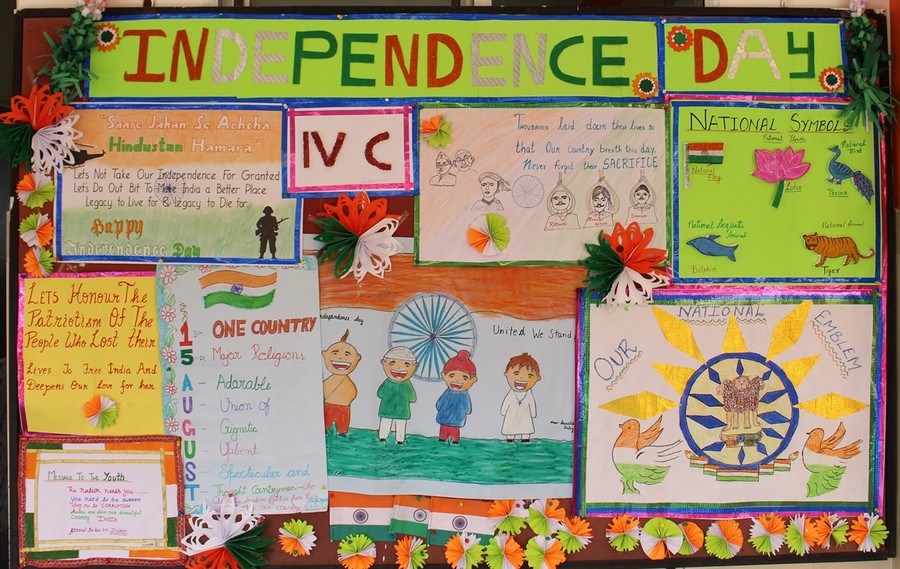 INDEPENDENCE DAY
"Saare Jahan Se Achcha
Hindustan Hamara"
Lets Not Take Our Independence For Granted
Lets Do Out Bit To Make India a Better Place
Legacy to Live for & Legacy to Die for.
Happy
Independence Day
IV C
THOUSANDS laid down their lives so
that Our Country breath this day.
Never forget their SACRIFICE
NATIONAL SYMBOLS
National Flag
National Flower
Lotus
National Bird
Peacock
National Aquatic Animal
Dolphin
National Animal
Tiger
LETS HONOUR THE
PATRIOTISM OF THE
PEOPLE WHO LOST their
Lives To Free India And
Deepens Our Love for her
15 AUGUST
ONE COUNTRY
Major Religions
Adorable
Union of
Gignatic
Upbent
Spectacular and
Thought Cantryman
Independence day
United We Stand
OUR NATIONAL EMBLEM
MESSAGE TO THE YOUTH
The Nation needs you
You need to be aware
Say no to CORRUPTION
INDIA